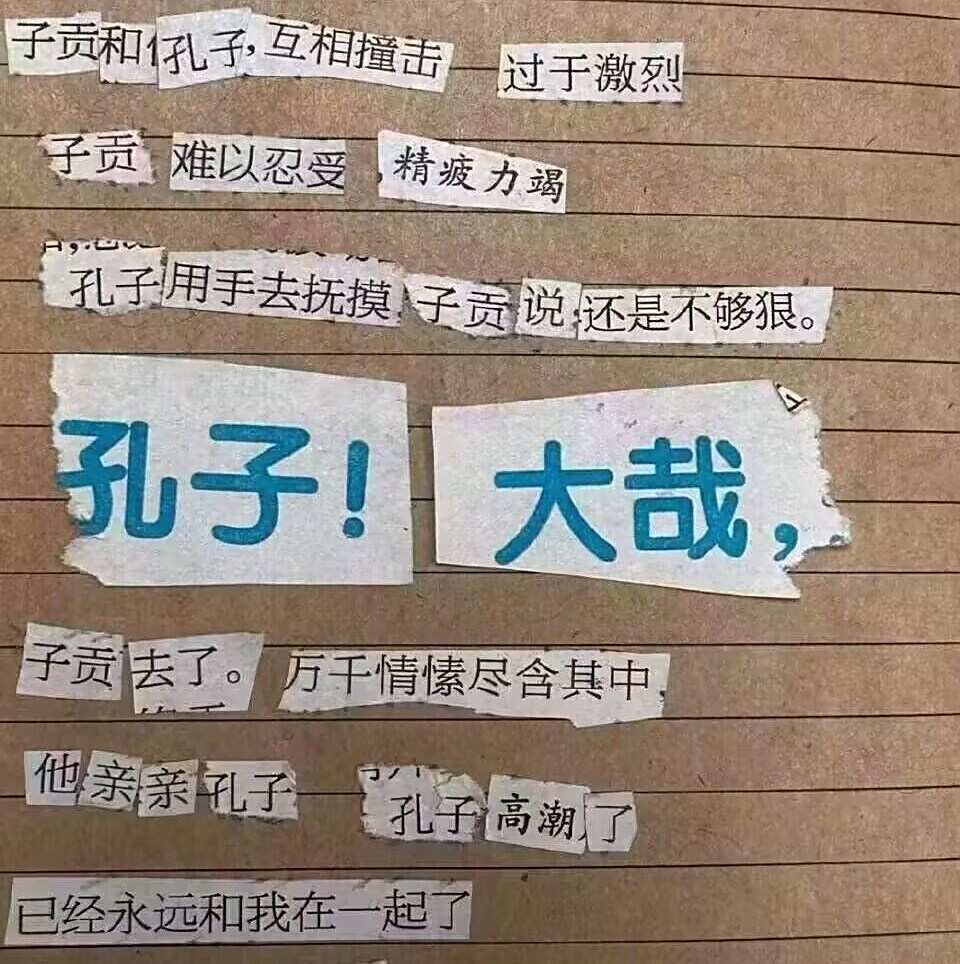 子贡和孔子，互相撞击 过于激烈
子贡 难以忍受，精疲力竭
孔子用手去抚摸 子贡说 还是不够狠。
孔子！ 大哉，
子贡去了。 万千情愫尽含其中
他亲亲孔子 孔子高潮了
已经永远和我在一起了